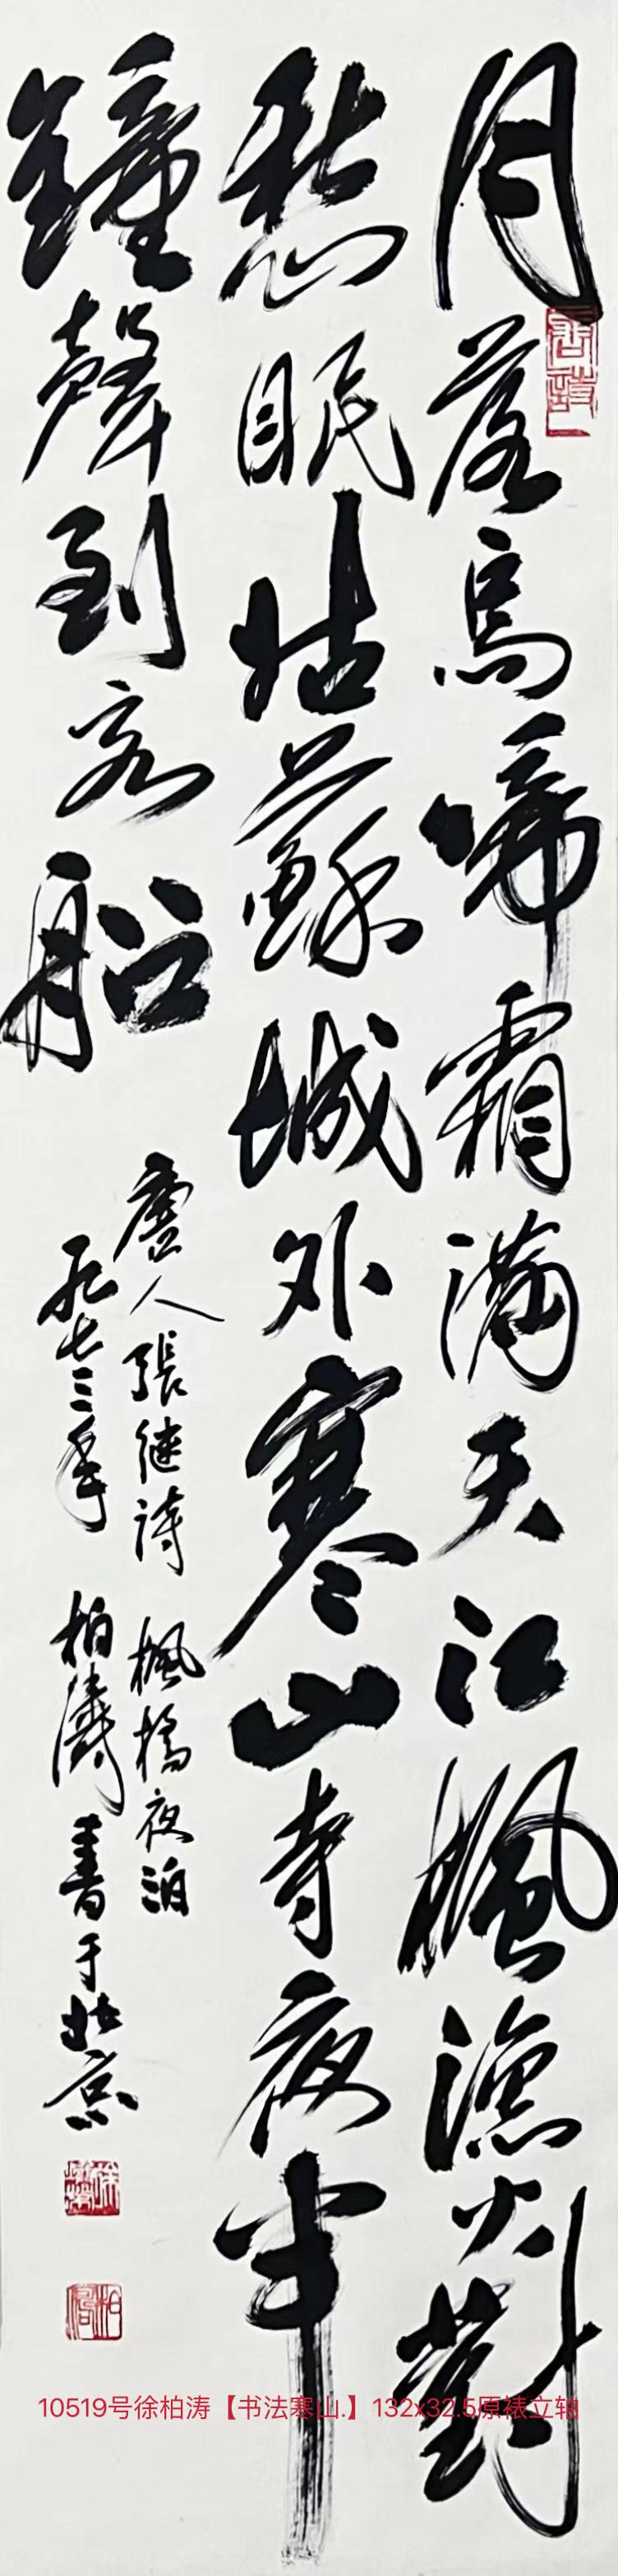 月落烏啼霜滿天江楓漁火對
愁眠姑蘇城外寒山寺夜半
鐘聲到客船
唐人張继詩 楓橋夜泊
一九七三年 柏濤書于北京
10519号徐柏涛【书法寒山.】132x32.5原裱立轴